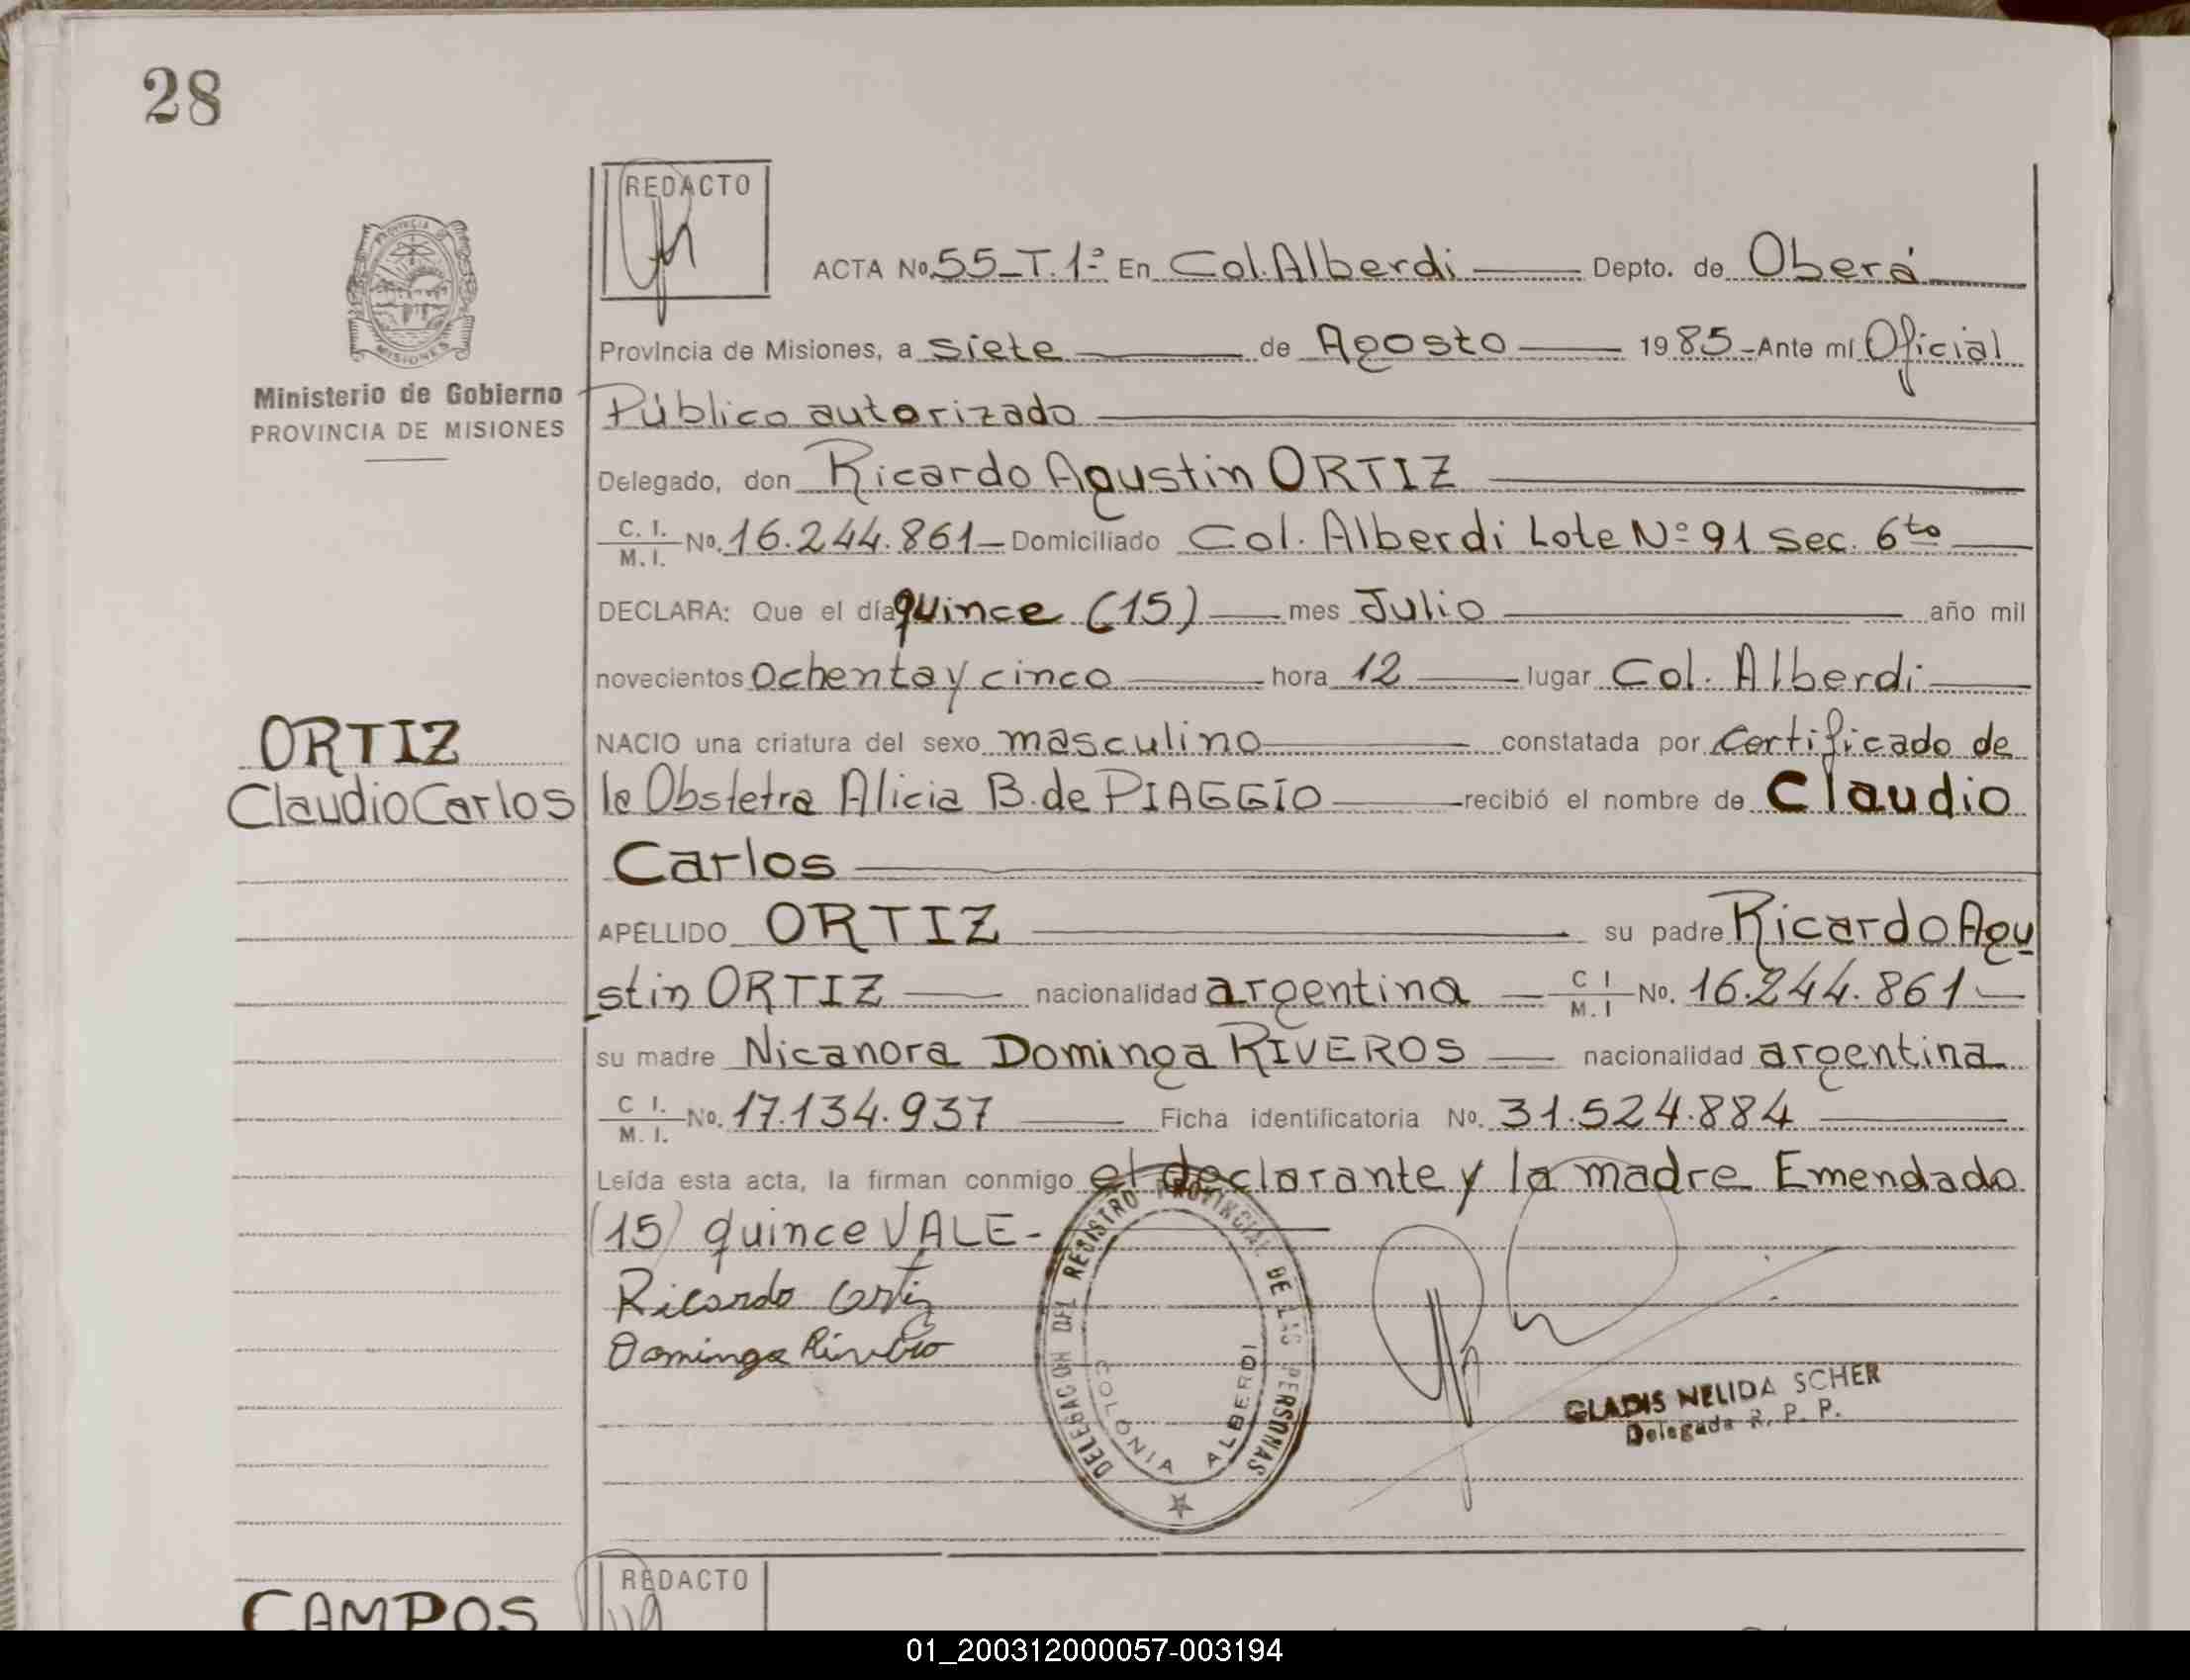 28
REDACTO
PROVINCIA
MISIONES
Ministerio de Gobierno
PROVINCIA DE MISIONES
ACTA No. 55_T.1ª En Col. Alberdi Depto. de Oberá
Provincia de Misiones, a siete de Agosto 1985-Ante mí Oficial
Público autorizado
Delegado, don Ricardo Agustin ORTIZ
C. I. M. I. No. 16.244.861 Domiciliado Col. Alberdi Lote Nº 91 Sec. 6to
DECLARA: Que el día quince (15) mes Julio año mil
novecientos Ochenta y cinco hora 12 lugar Col. Alberdi
ORTIZ
Claudio Carlos
NACIO una criatura del sexo masculino constatada por certificado de
la Obstetra Alicia B. de PIAGGIO recibió el nombre de Claudio
Carlos
APELLIDO ORTIZ su padre Ricardo Agu
stin ORTIZ nacionalidad argentina C I M. I No. 16.244.861
su madre Nicanora Dominga RIVEROS nacionalidad argentina
C I. M. I. No. 17.134.937 Ficha identificatoria No. 31.524.884
Leída esta acta, la firman conmigo el declarante y la madre Emendado
(15) quince VALE-
Ricardo Ortiz
Dominga Rivero
DELEGACION DEL REGISTRO PROVINCIAL DE LAS PERSONAS
COLONIA ALBERDI
GLADIS NELIDA SCHER
Delegada R. P. P.
REDACTO
CAMPOS
01_200312000057-003194